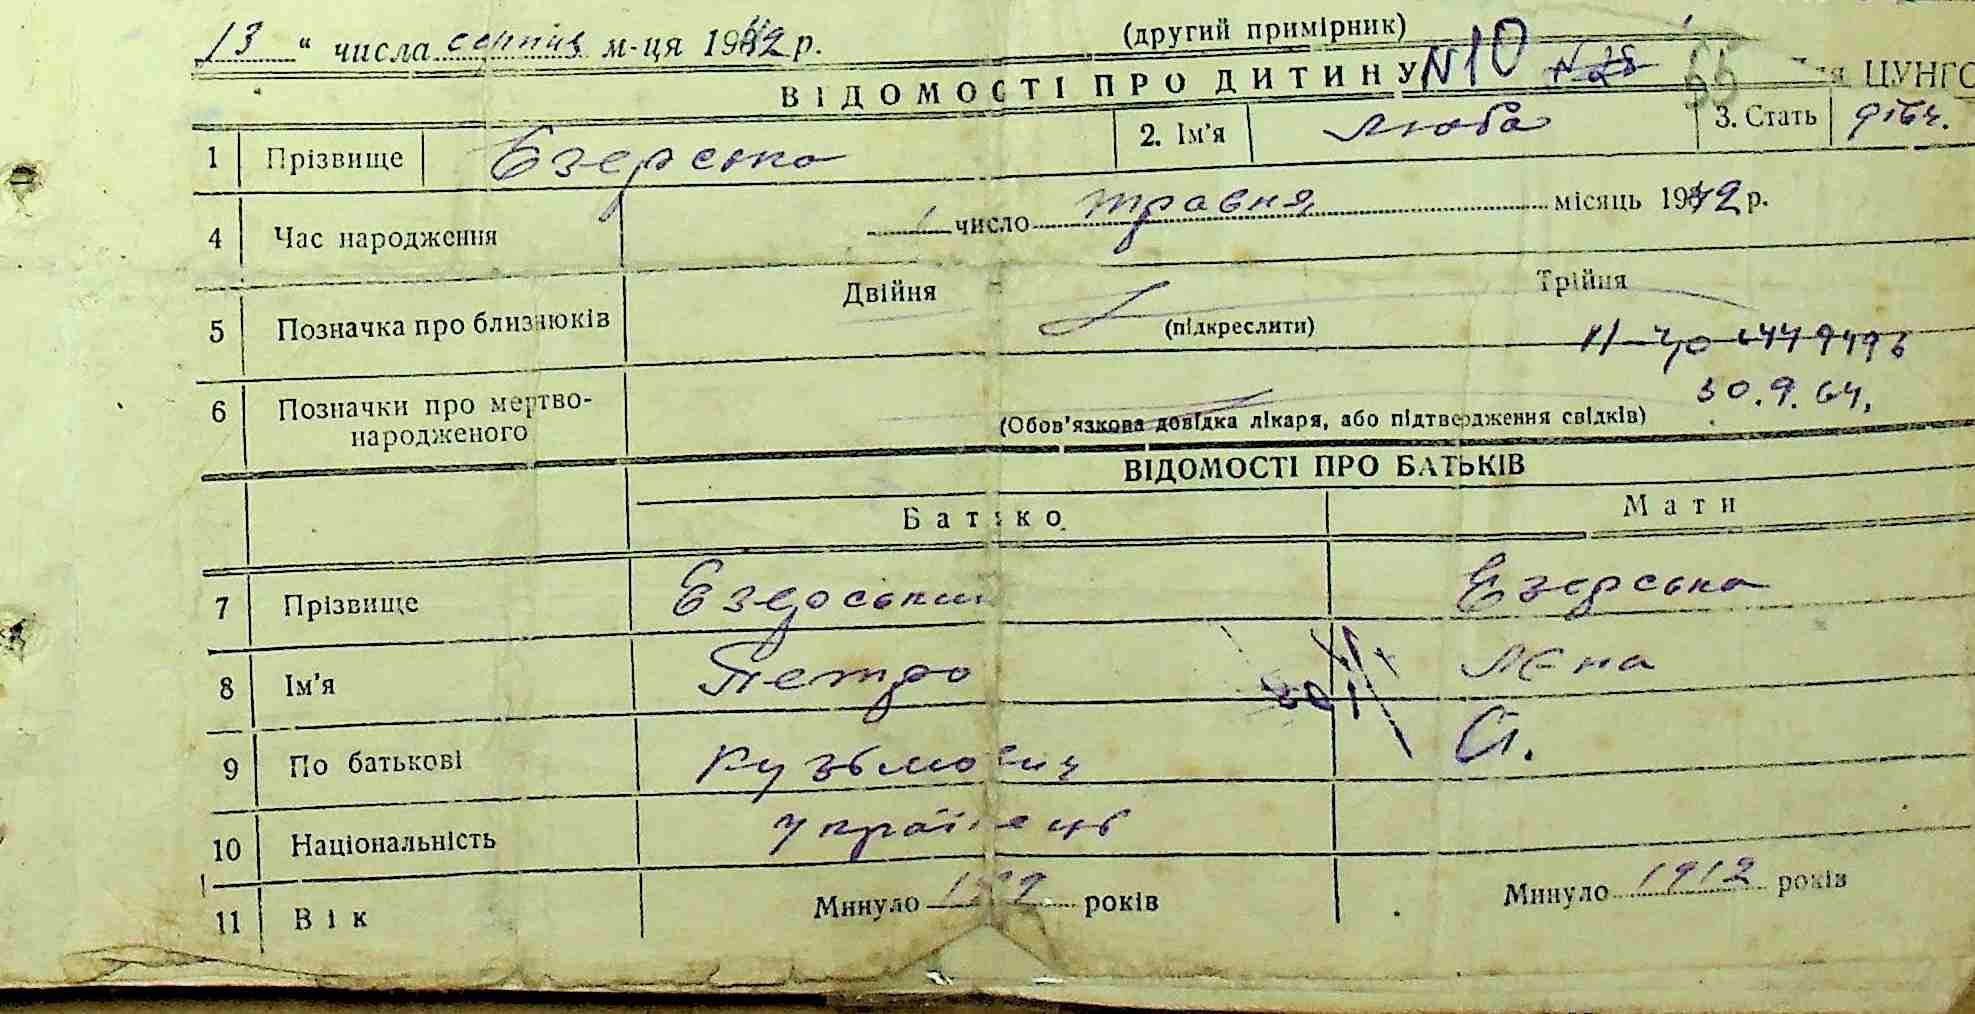 13 " числа серпня м-ця 1942 р.
(другий примірник)
ВІДОМОСТІ ПРО ДИТИНУ N10 N 28 ЦУНГО
1 Прізвище Езерська 2. Ім'я Люба 3. Стать дівч.
4 Час народження 1 число травня місяць 1942 р.
5 Позначка про близнюків Двійня (підкреслити) Трійня
30.9.64.
6 Позначки про мертво-
народженого (Обов'язкова довідка лікаря, або підтвердження свідків)
ВІДОМОСТІ ПРО БАТЬКІВ
Батько Мати
7 Прізвище Езерський Езерська
8 Ім'я Петро Лєна
9 По батькові Кузьмович
10 Національність Українець
11 Вік Минуло років Минуло 1912 років